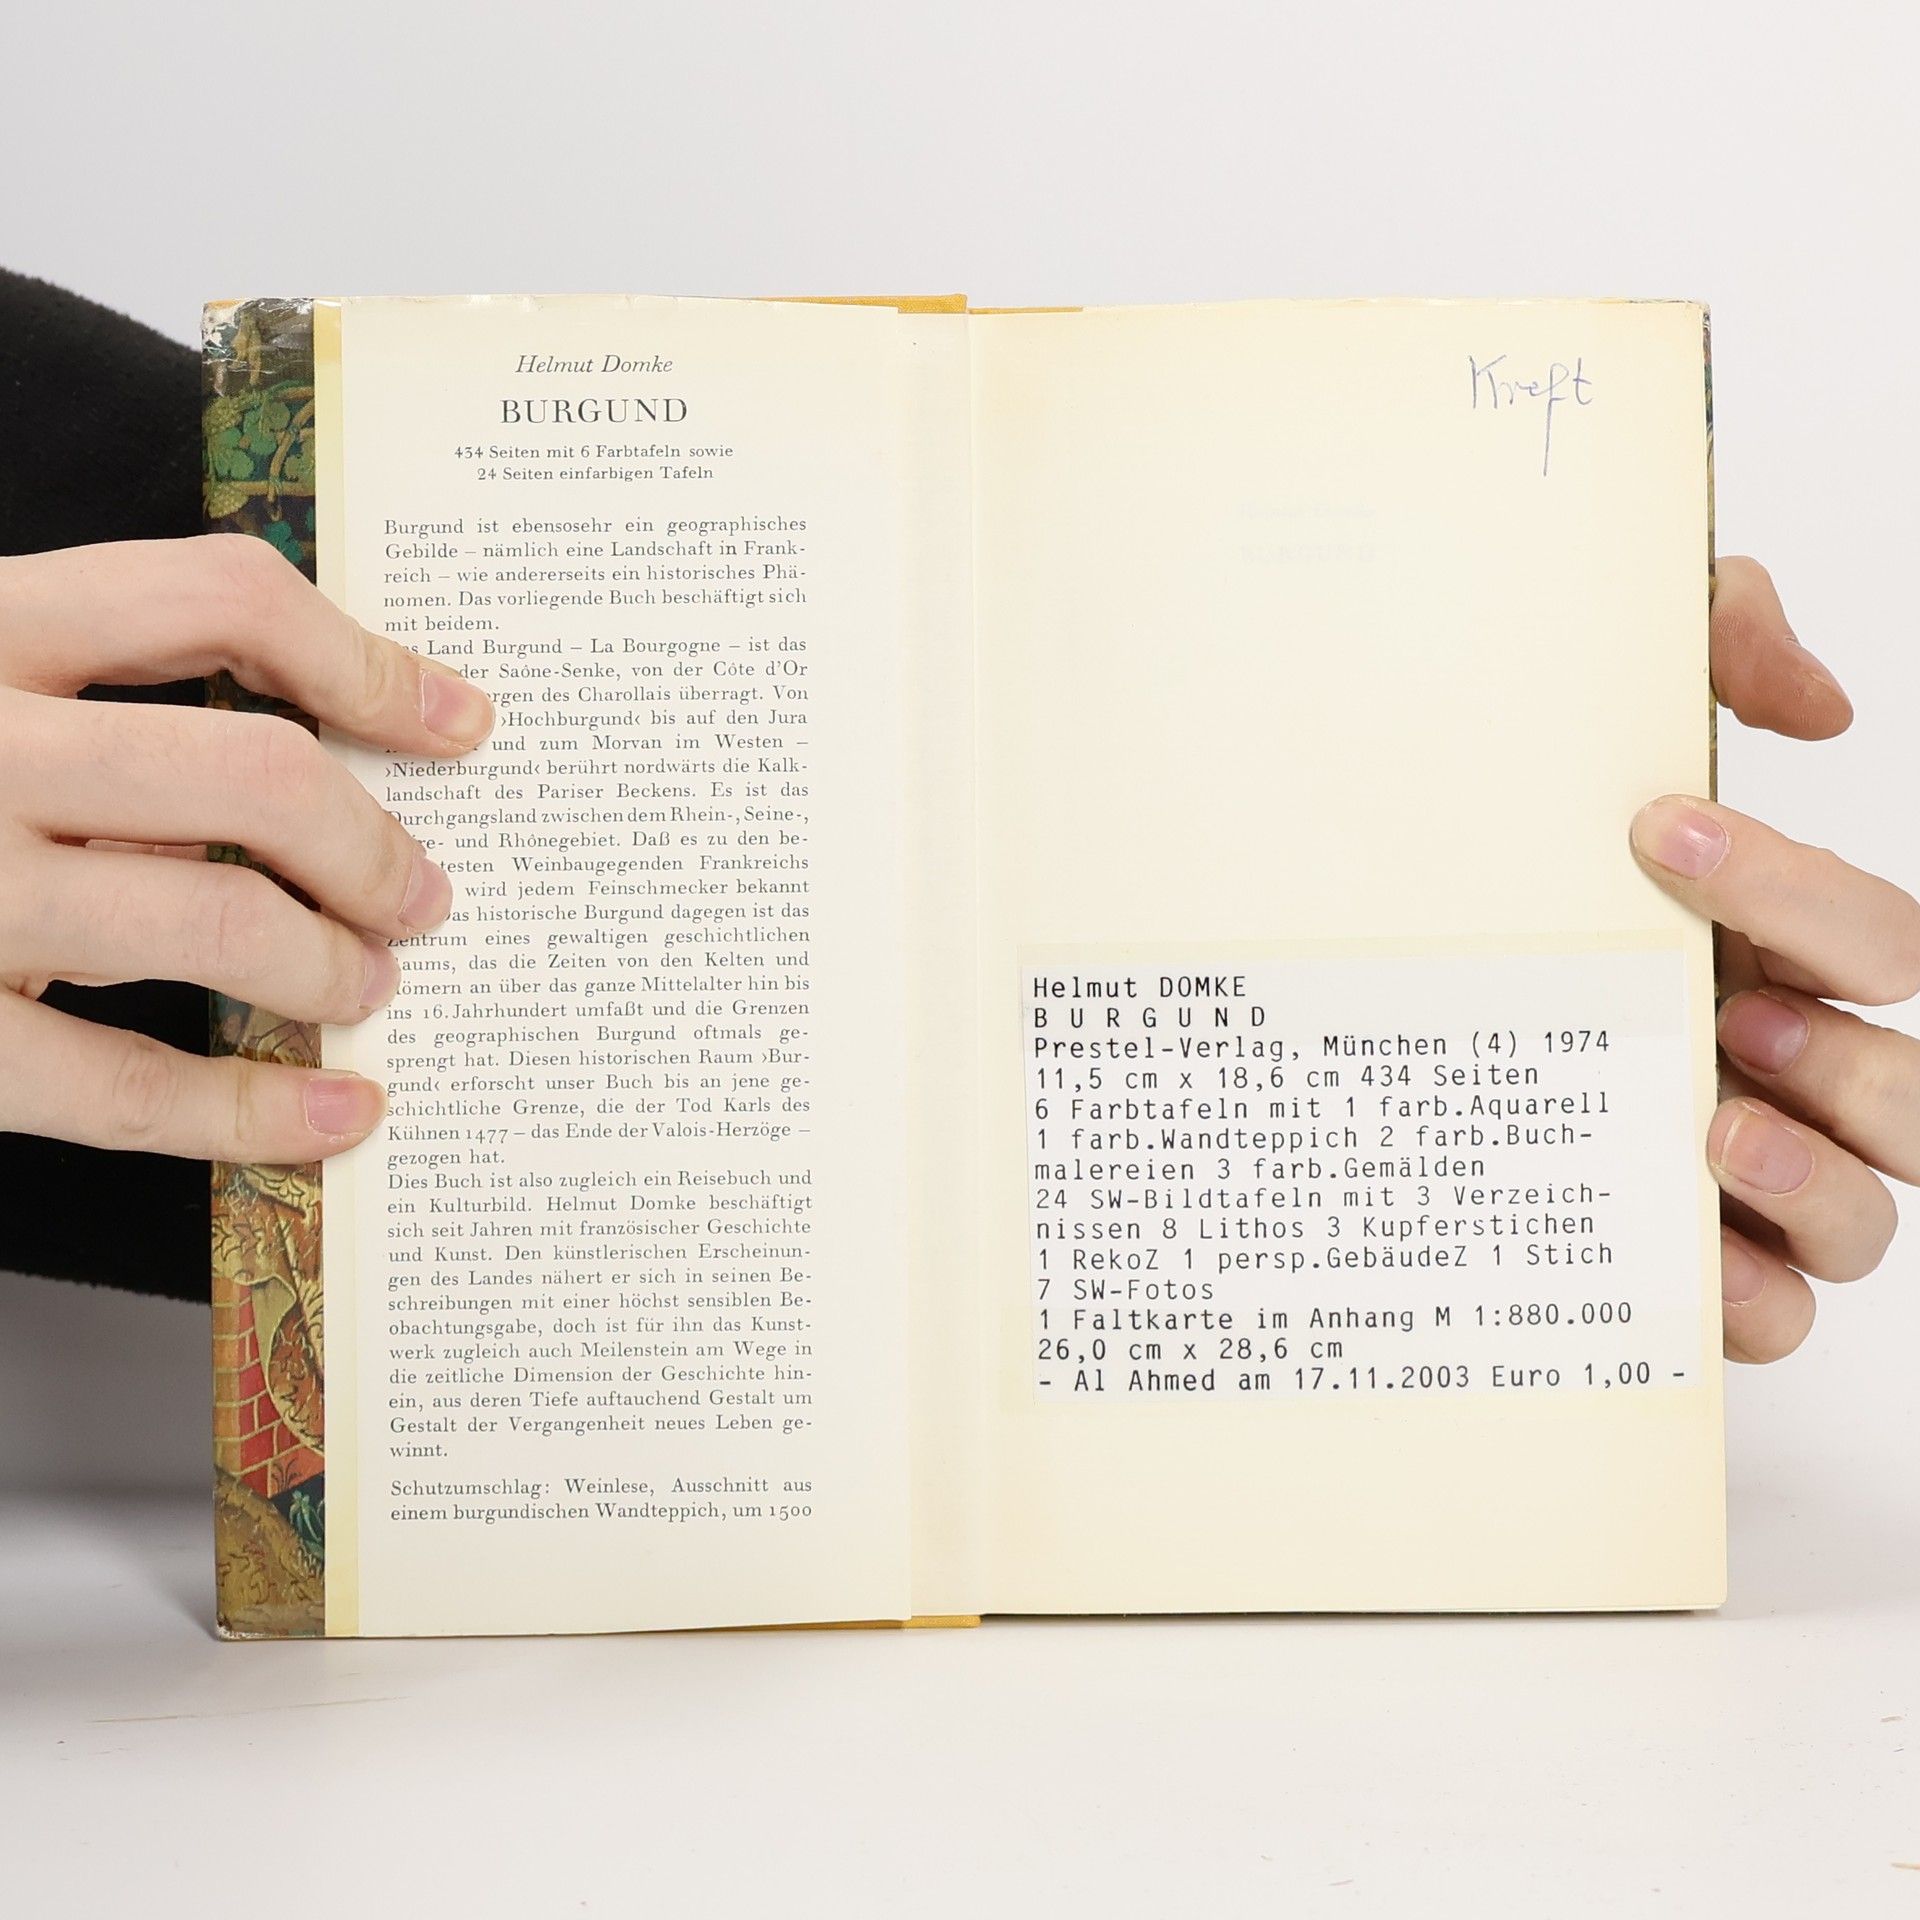 Helmut Domke
BURGUND
434 Seiten mit 6 Farbtafeln sowie
24 Seiten einfarbigen Tafeln
Burgund ist ebensosehr ein geographisches
Gebilde – nämlich eine Landschaft in Frank-
reich – wie andererseits ein historisches Phä-
nomen. Das vorliegende Buch beschäftigt sich
mit beidem.
Land Burgund – La Bourgogne – ist das
der Saône-Senke, von der Côte d'Or
des Charollais überragt. Von
›Hochburgund‹ bis auf den Jura
und zum Morvan im Westen –
›Niederburgund‹ berührt nordwärts die Kalk-
landschaft des Pariser Beckens. Es ist das
Durchgangsland zwischen dem Rhein-, Seine-,
und Rhônegebiet. Daß es zu den be-
Weinbaugegenden Frankreichs
wird jedem Feinschmecker bekannt
historische Burgund dagegen ist das
Zentrum eines gewaltigen geschichtlichen
Raums, das die Zeiten von den Kelten und
Römern an über das ganze Mittelalter hin bis
ins 16. Jahrhundert umfaßt und die Grenzen
des geographischen Burgund oftmals ge-
sprengt hat. Diesen historischen Raum ›Bur-
gund‹ erforscht unser Buch bis an jene ge-
schichtliche Grenze, die der Tod Karls des
Kühnen 1477 – das Ende der Valois-Herzöge –
gezogen hat.
Dies Buch ist also zugleich ein Reisebuch und
ein Kulturbild. Helmut Domke beschäftigt
sich seit Jahren mit französischer Geschichte
und Kunst. Den künstlerischen Erscheinun-
gen des Landes nähert er sich in seinen Be-
schreibungen mit einer höchst sensiblen Be-
obachtungsgabe, doch ist für ihn das Kunst-
werk zugleich auch Meilenstein am Wege in
die zeitliche Dimension der Geschichte hin-
ein, aus deren Tiefe auftauchend Gestalt um
Gestalt der Vergangenheit neues Leben ge-
winnt.
Schutzumschlag: Weinlese, Ausschnitt aus
einem burgundischen Wandteppich, um 1500
Kreft
Helmut DOMKE
B U R G U N D
Prestel-Verlag, München (4) 1974
11,5 cm x 18,6 cm 434 Seiten
6 Farbtafeln mit 1 farb.Aquarell
1 farb.Wandteppich 2 farb.Buch-
malereien 3 farb.Gemälden
24 SW-Bildtafeln mit 3 Verzeich-
nissen 8 Lithos 3 Kupferstichen
1 RekoZ 1 persp.GebäudeZ 1 Stich
7 SW-Fotos
1 Faltkarte im Anhang M 1:880.000
26,0 cm x 28,6 cm
- Al Ahmed am 17.11.2003 Euro 1,00 -